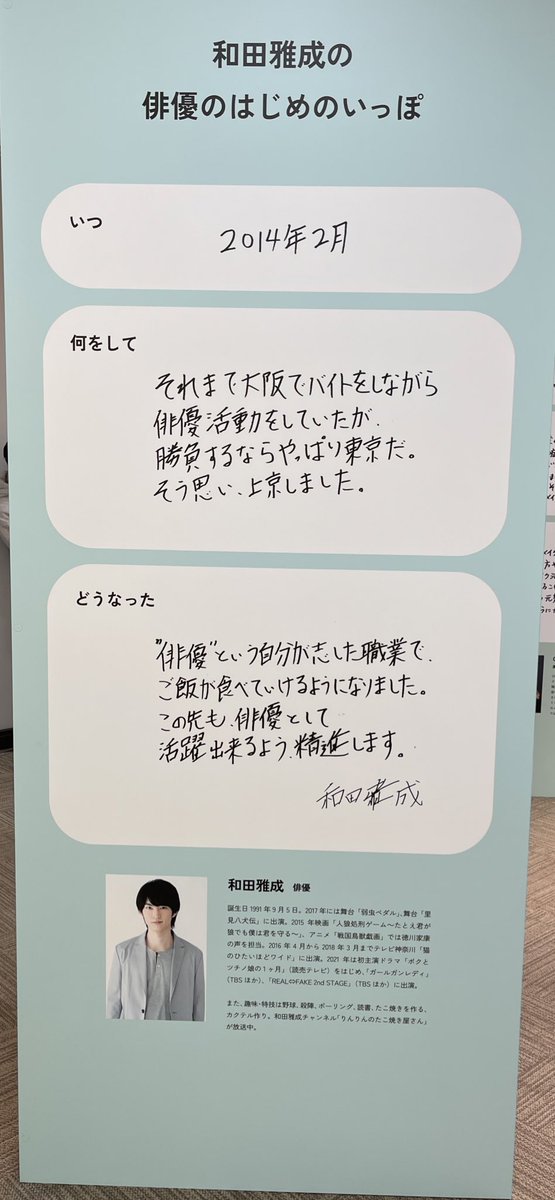 和田雅成の
俳優のはじめのいっぽ
いつ
2014年2月
何をして
それまで大阪でバイトをしながら
俳優活動をしていたが、
勝負するならやっぱり東京だ。
そう思い、上京しました。
どうなった
"俳優"という自分が志した職業で、
ご飯が食べていけるようになりました。
この先も、俳優として
活躍出来るよう、精進します。
和田雅成
和田雅成 俳優
誕生日1991年9月5日。2017年には舞台「弱虫ペダル」、舞台「里
見八犬伝」に出演。2015年映画「人狼処刑ゲーム~たとえ君が
狼でも僕は君を守る~」、アニメ「戦国鳥獣戯画」では徳川家康
の声を担当。2016年4月から2018年3月までテレビ神奈川「猫
のひたいほどワイド」に出演。2021年は初主演ドラマ「ボクと
ツチノ娘の1ヶ月」(読売テレビ)をはじめ、「ガールガンレディ」
(TBSほか)、「REAL⇔FAKE 2nd STAGE」(TBSほか)に出演。
また、趣味・特技は野球、殺陣、ボーリング、読書、たこ焼きを作る、
カクテル作り。和田雅成チャンネル「りんりんのたこ焼き屋さん」
が放送中。